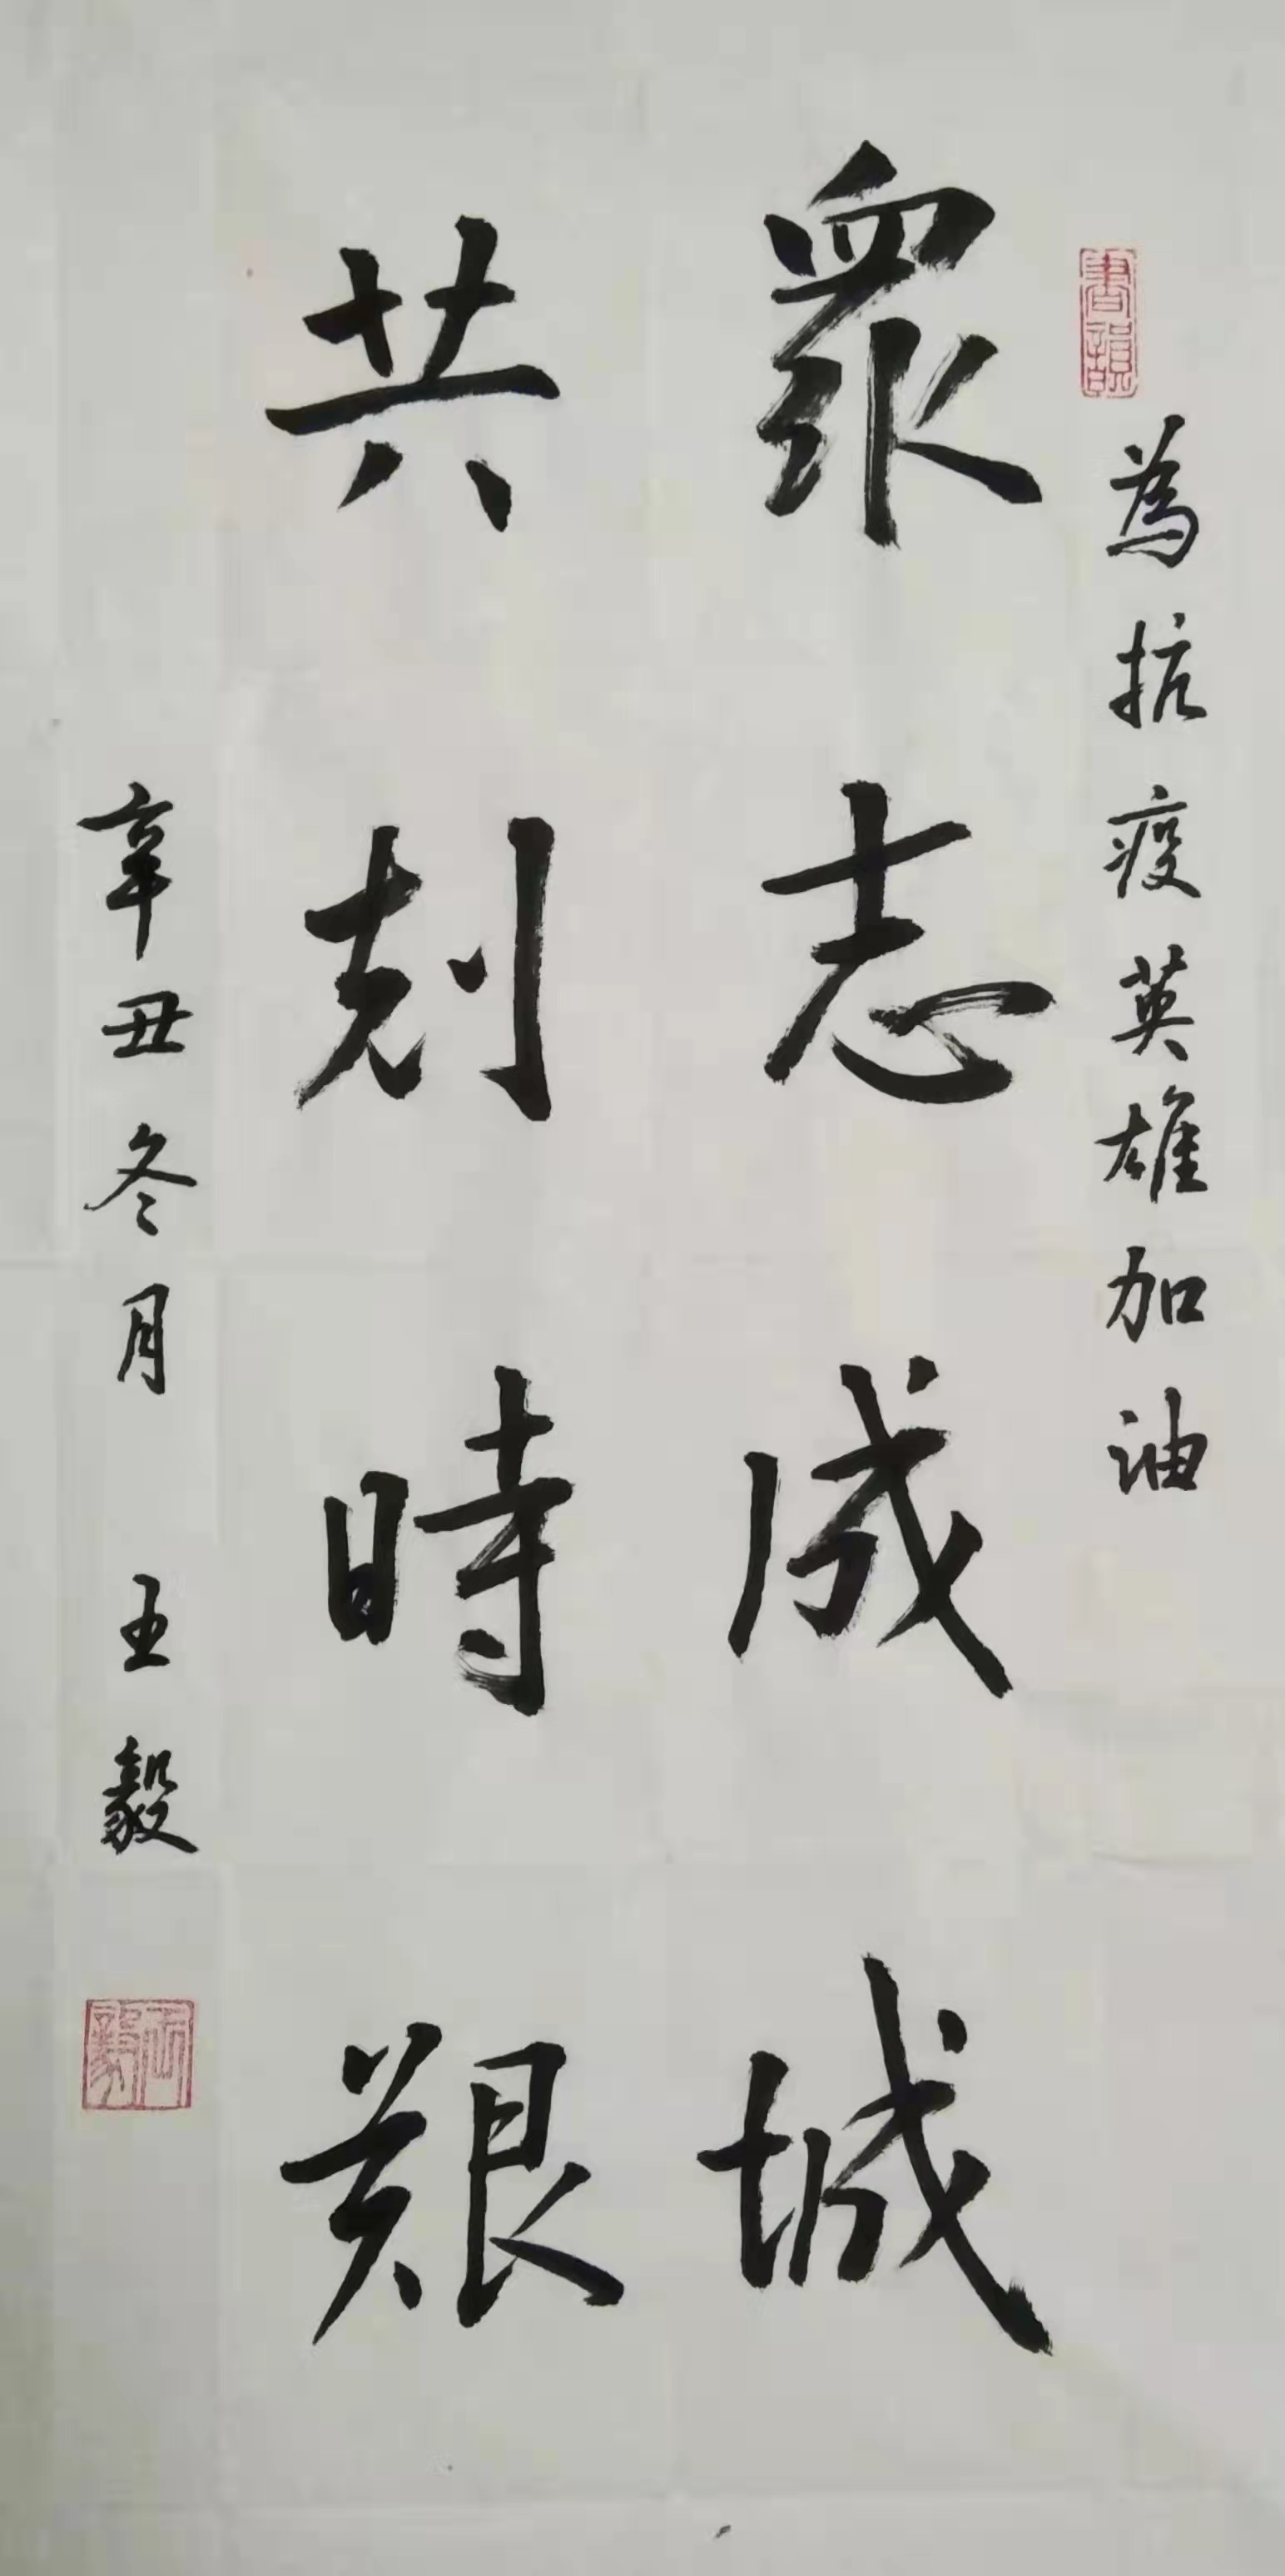 書韻
為抗疫英雄加油
衆志成城
共剋時艱
辛丑冬月 王毅
王毅